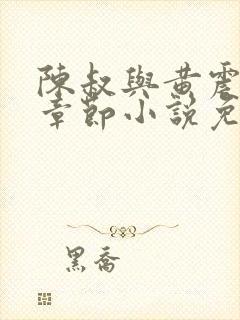 陳叔與黃震
章節小說免
黑喬